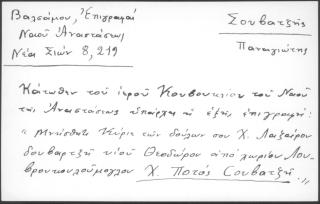 Βαλσάμου, Ἐπιγραφαί
Ναοῦ Ἀναστάσεως
Νέα Σιών 8, 219
Σουβατζῆς
Παναγιώτης
Κάτωθεν τοῦ ἱεροῦ Κουβουκλίου τοῦ Ναοῦ
τῆς Ἀναστάσεως ὑπάρχει ἡ ἑξῆς ἐπιγραφή:
"Μνήσθητι Κύριε τῶν δούλων σου Χ. Λαζάρου
σουβαρτζῆ υἱοῦ Θεοδώρου ἀπό χωρίου
Χ. Ποτός Σουβατζῆ."